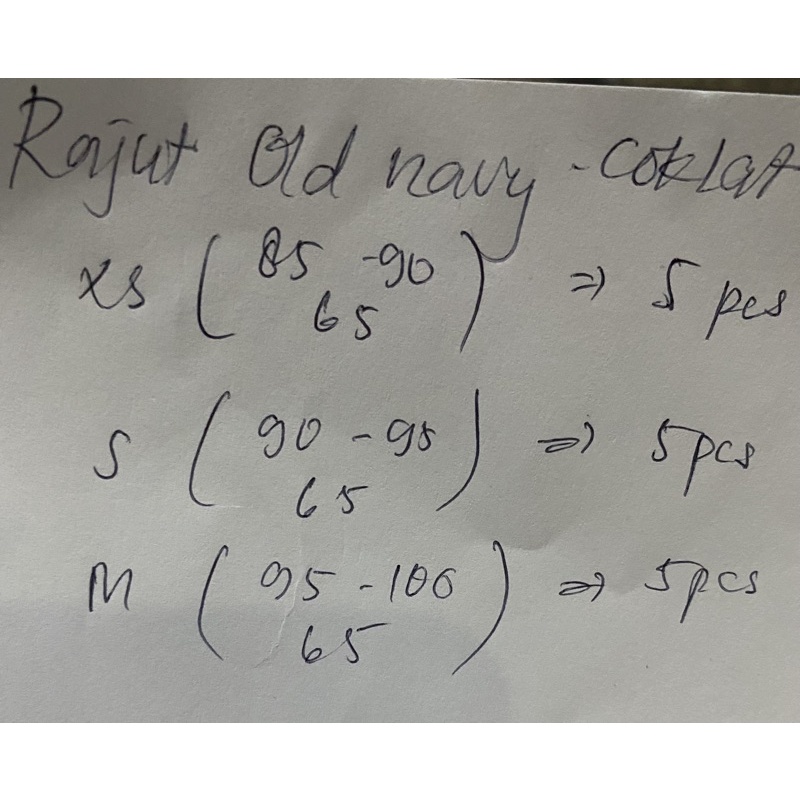 Rajut Old navy - COKLAT
XS ( 85 - 90 ) => 5 pcs
65
S ( 90 - 95 ) => 5 pcs
65
M ( 95 - 100 ) => 5 pcs
65